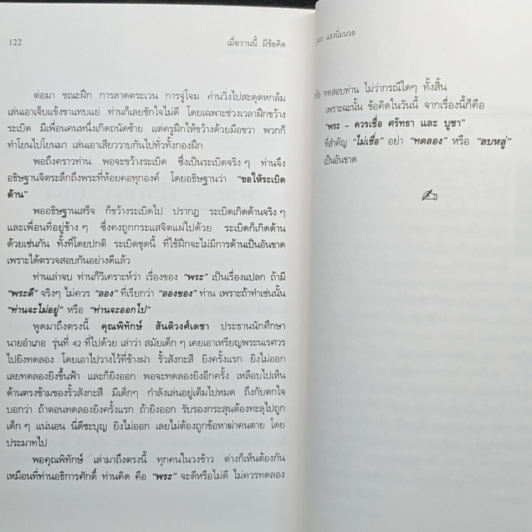 122
เมื่อวานนี้ มีข้อคิด
ต่อมา ขณะฝึก การลาดตระเวน การจู่โจม ค่ายวิ่งไปสะดุดหกล้ม
เล่นเอาเจ็บแข้งขาแทบแย่ ท่านก็เลยชักใจไม่ดี โดยเฉพาะช่วงเวลาฝึกขว้าง
ระเบิด มีเพื่อนคนหนึ่งเกิดถนัดซ้าย แต่ครูฝึกให้ขว้างด้วยมือขวา พวกก็
ทำโยนไปโยนมา เล่นเอาเสียววาบกันไปทั่วทั้งกองฝึก
พอถึงคราวท่าน พอจะขว้างระเบิด ซึ่งเป็นระเบิดจริงๆ ท่านจึง
อธิษฐานจิตระลึกถึงพระที่ห้อยคอทุกองค์ โดยอธิษฐานว่า "ขอให้ระเบิด
ด้าน"
พออธิษฐานเสร็จ ก็ขว้างระเบิดไป ปรากฏ ระเบิดเกิดด้านจริงๆ
และเพื่อนที่อยู่ข้างๆ ซึ่งคงถูกกระแสจิตแผ่ไปด้วย ระเบิดก็เกิดด้าน
ด้วยเช่นกัน ทั้งที่โดยปกติ ระเบิดชุดนี้ ที่ใช้ฝึกจะไม่มีการด้านเป็นอันขาด
เพราะได้ตรวจสอบกันอย่างดีแล้ว
ท่านเล่าจบ ท่านก็วิเคราะห์ว่า เรื่องของ "พระ" เป็นเรื่องแปลก ถ้ามี
"พระดี" จริงๆ ไม่ควร "ลอง" ที่เรียกว่า "ลองของ" ท่าน เพราะถ้าทำเช่นนั้น
"ท่านจะไม่อยู่" หรือ "ท่านจะออกไป"
พูดมาถึงตรงนี้ คุณพิทักษ์ สันติวงศ์เดชา ประธานนักศึกษา
นายอำเภอ รุ่นที่ 42 ที่ไปด้วย เล่าว่า สมัยเด็กๆ เคยเอาเหรียญพระนเรศวร
ไปยิงทดลอง โดยเอาไปวางไว้ที่ข้างฝา รั้วสังกะสี ยิงครั้งแรก ยิงไม่ออก
เลยทดลองยิงขึ้นฟ้า และก็ยิงออก พอจะทดลองยิงอีกครั้ง เหลือบไปเห็น
ด้านตรงข้ามของรั้วสังกะสี มีเด็กๆ กำลังเล่นอยู่เต็มไปหมด ถึงกับตกใจ
บอกว่า ถ้าตอนทดลองยิงครั้งแรก ถ้ายิงออก รับรองกระสุนต้องทะลุไปถูก
เด็กๆ แน่นอน นี่ดีซะบุญ ยิงไม่ออก เลยไม่ต้องถูกข้อหาฆ่าคนตาย โดย
ประมาทไป
พอคุณพิทักษ์ เล่ามาถึงตรงนี้ ทุกคนในวงข้าว ต่างก็เห็นต้องกัน
เหมือนที่ท่านอธิการศักดิ์ ท่านคิด คือ "พระ" จะดีหรือไม่ดี ไม่ควรทดลอง
แสงนิ่มนวล
หรือ ทดสอบท่าน ไม่ว่ากรณีใดๆ ทั้งสิ้น
เพราะฉะนั้น ข้อคิดในวันนี้ จากเรื่องนี้ก็คือ
"พระ - ควรเชื่อ ศรัทธา และ บูชา"
ที่สำคัญ "ไม่เชื่อ" อย่า "ทดลอง" หรือ "ลบหลู่"
เป็นอันขาด